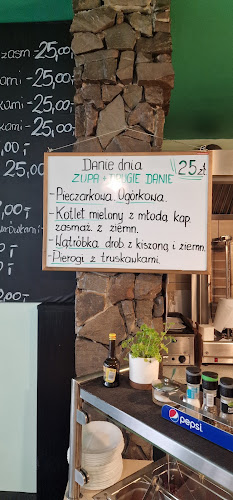 zasm - 25,00
25,00
kami - 25,00
kami - 25,00
Danie dnia 25 zł
ZUPA + DRUGIE DANIE
- Pieczarkowa, Ogórkowa.
- Kotlet mielony z młodą kap.
zasmaż. z ziemn.
- Wątróbka drob. z kiszoną i ziemn.
- Pierogi z truskawkami.
pepsi